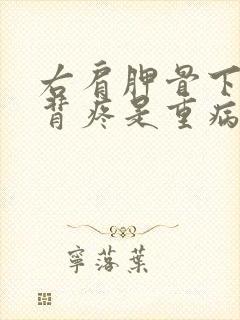 右肩胛骨下
背疼是重病
寧落葉